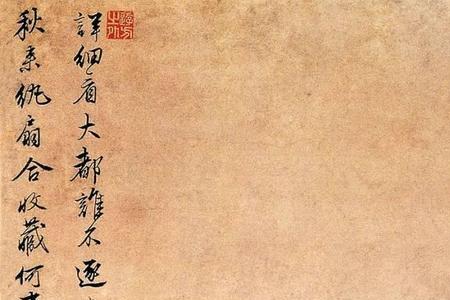 秋来紈扇合收藏何
詳細看大都誰不逐